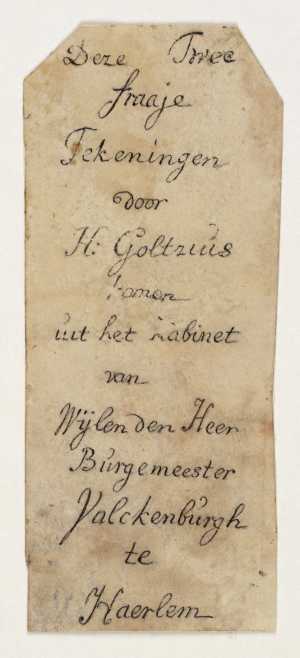 Deze Twee
fraaje
Tekeningen
door
H: Goltzius
komen
uit het Kabinet
van
Wijlen den Heer
Burgemeester
Valckenburgh
te
Haerlem